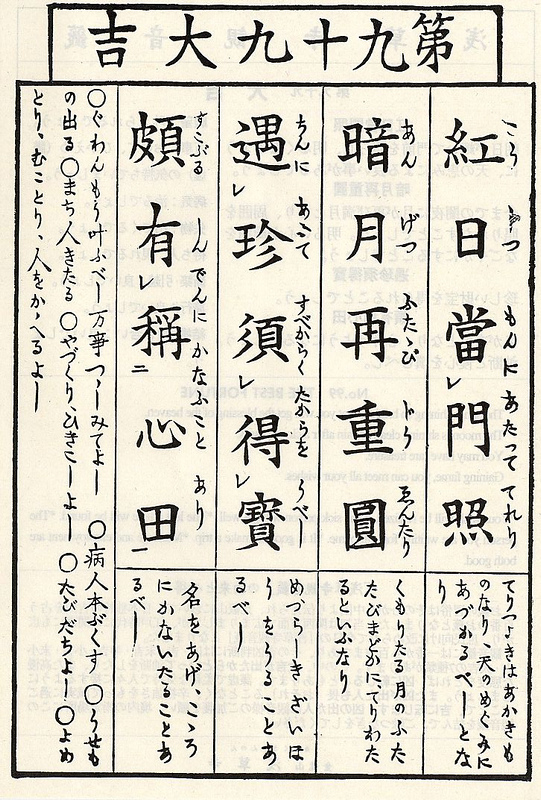 第九十九大吉
こう じつ もんに あたって てれり
紅日當レ門照
てりつよきはあかきも
のなり 天のめぐみに
あづかるべしとな
り
あん げつ ふたゝび ゑんなり
暗月再重圓
くもりたる月のふた
たびまどかにてりわた
るといふなり
ちんに あふて すべからく たからを うべし
遇レ珍須レ得レ寶
めづらしきざいほ
うをうるとあ
るべし
すこぶる しんでんに かなふこと あり
頗有レ稱二心田一
名をあげこゝろ
にかないたることあ
るべし
〇わんもう叶ふべし 万事つゝしみてよし 〇病人本ぶくす 〇うせも
の出る 〇まち人きたる 〇やづくり、ひきこしよし 〇たびだちよし 〇よめ
とり、むことり、人をかゝへるよし